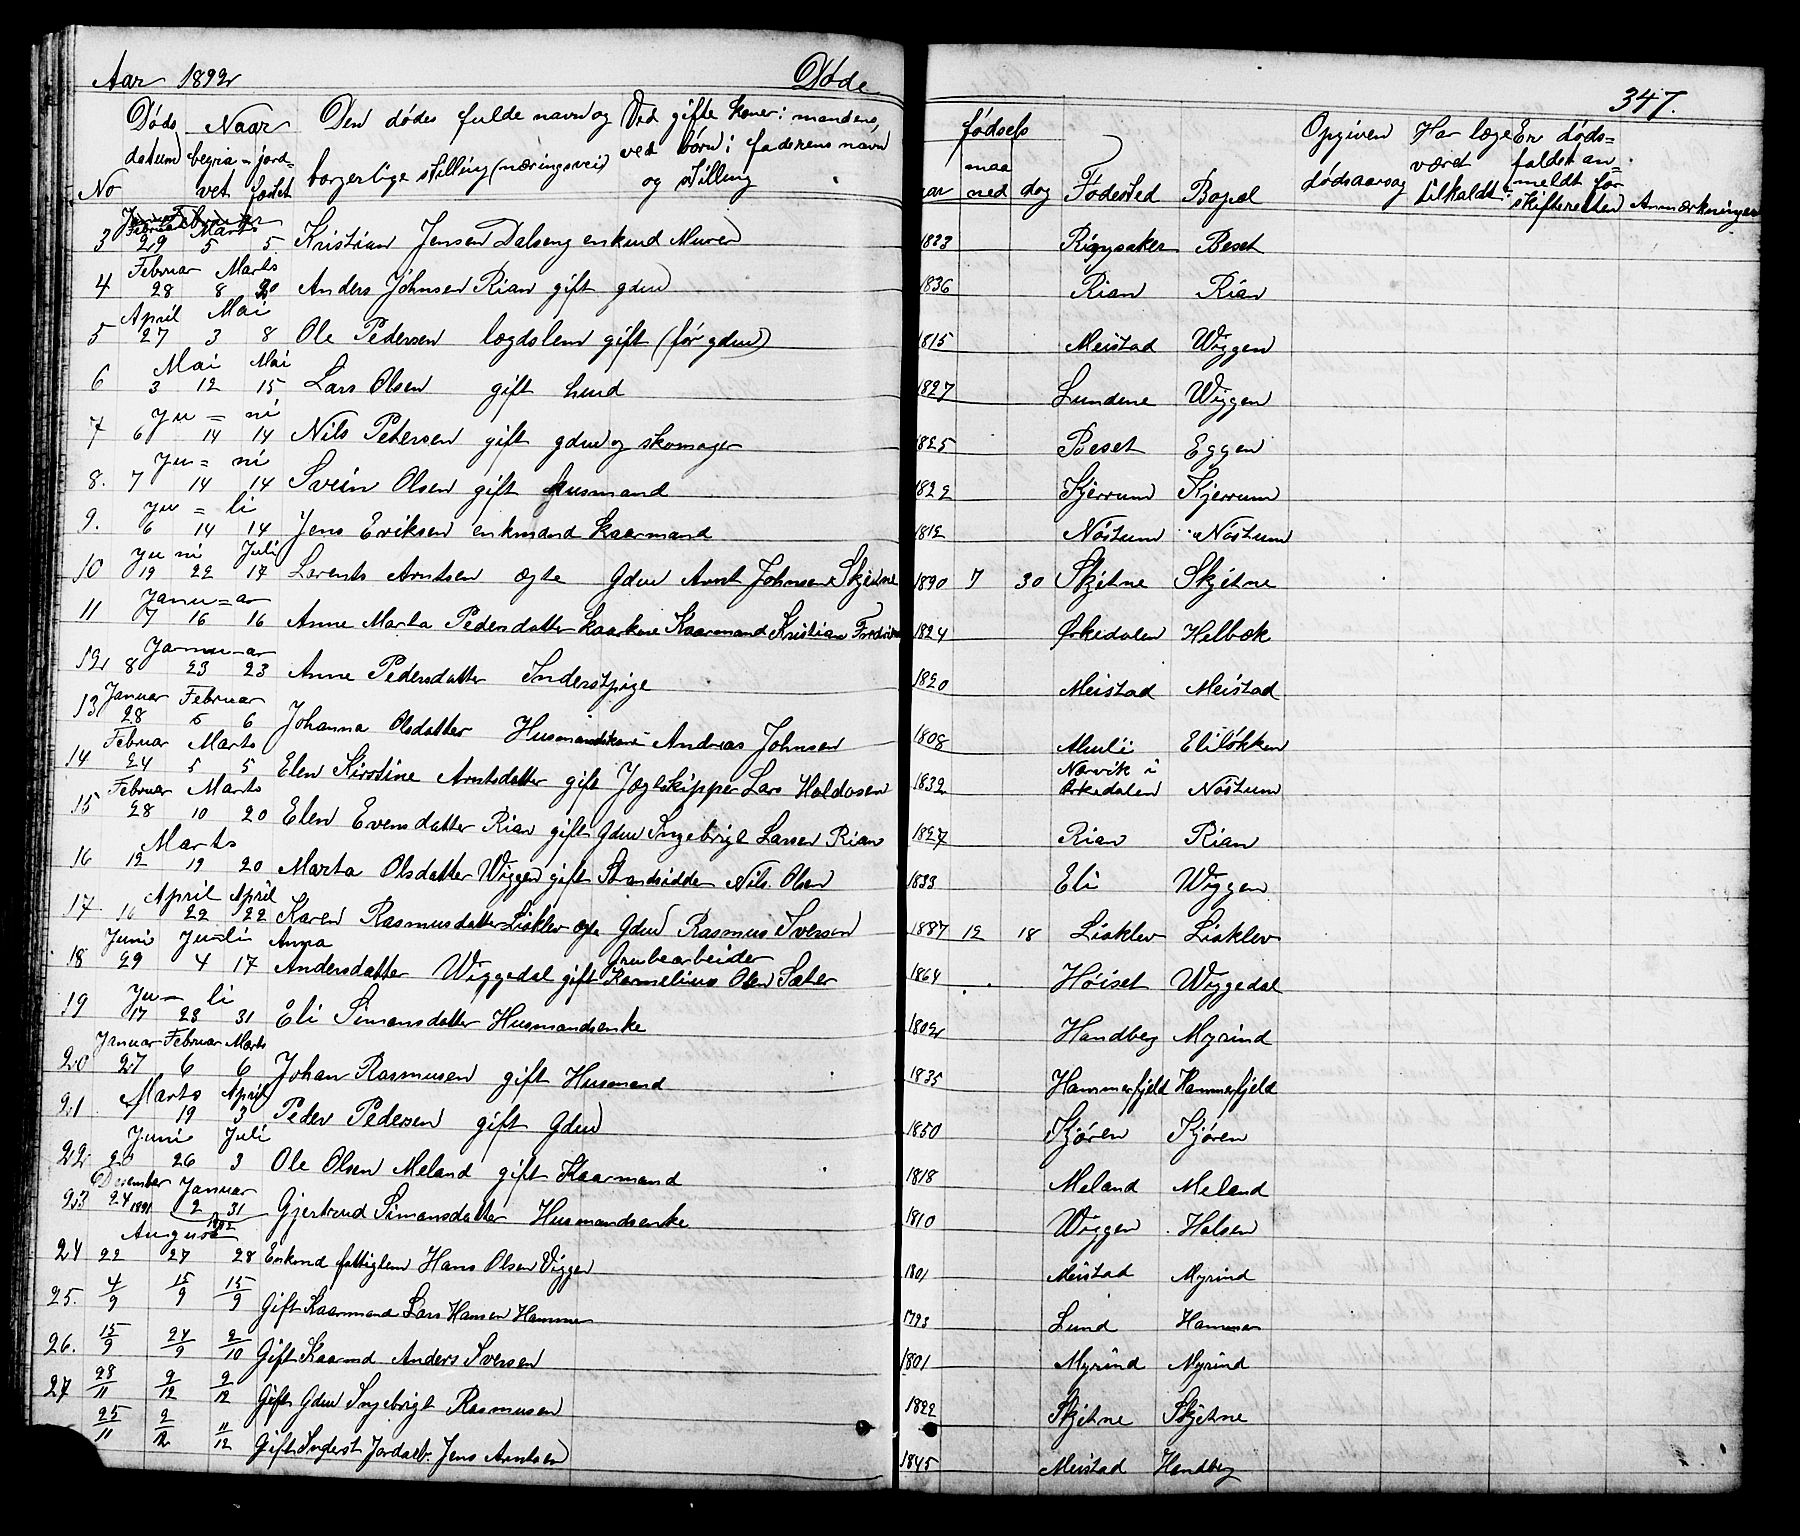 Aar 1892 Døde 347.
No Døds datum Naar begra=vet jord=fæstet Den dødes fulde navn og borgerlige stilling (næringsvei) Ved gifte koner: mandens, ved børn: faderens navn og stilling fødsels aar maaned dag Fødested Bopæl Opgiven dødsaarsag Har læge været tilkaldt? Er døds=faldet an=meldt for skifteretten Anmærkninger
Februar Marts
3 29 5 5 Kristian Jensen Dalseng enkmd Murer 1823 Ringsaker Beset
Februar Marts
4 28 8 20 Anders Johnsen Rian gift gdm 1836 Rian Rian
April Mai
5 27 3 8 Ole Pedersen lægdslem gift (før gdm) 1815 Meistad Wiggen
Mai Mai
6 3 12 15 Lars Olsen gift hmd 1827 Lundene Wiggen
Ju = ni
7 6 14 14 Nils Petersen gift gdm og skomager 1825 Beset Eggen
Ju = ni
8. 7 14 14 Svein Olsen gift husmand 1822 Kjerrum Kjerrum
Ju = li
9. 6 14 14 Jens Eriksen enkmand kaarmand 1812 Nostum Nostum
Ju ni Juli
10 19 22 17 Lorents Arntsen ægte Gdm Arnt Johnsen Skjetne 1890 7 30 Skjetne Skjetne
Janu = ar
11 7 16 16 Anne Marta Pedersdatter kaarkone Kaarmand Kristian 1824 Ørkedalen Helbæk
Janu - ar
12 8 23 23 Anne Pedersdatter Inderstpige 1820 Meistad Meistad
Januar Februar
13 28 5 6 Johanna Olsdatter Husmandskone Andreas Johnsen 1808 Muli Eliløkken
Februar Marts
14 24 5 5 Elen Kirstine Arntsdatter gift Jægtskipper Lars Haldosen 1832 Nærvik i Ørkedalen Nostum
Februar Marts
15 28 10 20 Elen Evensdatter Rian gift Gdm Ingebrigt Larsen Rian 1827 Rian Rian
Marts
16 12 19 20 Marta Olsdatter Wiggen gift Strandsidder Nils Olsen 1833 Eli Wiggen
April April
17 16 22 22 Karen Rasmusdatter Lioklev ægte Gdm Rasmus Iversen 1887 12 18 Lioklev Lioklev
Juni Ju-li Anna
18 29 4 17 Andersdatter Wiggedal gift Grubearbeider Kornelius Olsen Sæter 1864 Høiset Wiggedal
Ju - li
19 17 23 31 Eli Simonsdatter Husmandsenke 1802 Handberg Myrind
Januar Februar Marts
20 27 6 6 Johan Rasmusen gift Husmand 1835 Hammerfjeld Hammerfjeld
Marts April
21 19 3 Peder Pedersen gift Gdm 1850 Kjøren Kjøren
Juni Juli
22 20 26 3 Ole Olsen Meland gift Kaarmand 1818 Meland Meland
Desember Januar
23 24 1891 2 31 1892 Gjertrud Simonsdatter Husmandsenke 1810 Wiggen Holsen
August
24 22 27 28 Enkmd fattiglem Hans Olsen Viggen 1801 Meistad Myrind
25. 4/9 15/9 15/9 Gift Kaarmand Lars Hansen Hammer 1793 Lund Hammer
26. 15/9 24/9 2/10 Gift Kaarmd Anders Iversen 1801 Myrind Myrind
27 28/11 9/12 9/12 Gift Gdm Ingebrigt Rasmusen 1822 Skjetne Skjetne
25/11 2/12 11/12 Gift Inderst Jordarb. Jens Arntsen 1845 Meistad Handberg